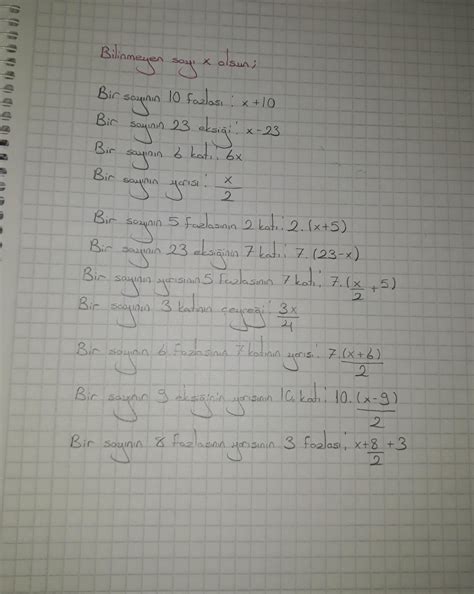 Bilinmeyen sayı x olsun;
Bir sayının 10 fazlası: x+10
Bir sayının 23 eksiği: x-23
Bir sayının 6 katı: 6x
Bir sayının yarısı: x/2
Bir sayının 5 fazlasının 2 katı: 2.(x+5)
Bir sayının 23 eksiğinin 7 katı: 7.(23-x)
Bir sayının yarısının 5 fazlasının 7 katı: 7.(x/2+5)
Bir sayının 3 katının çeyreği: 3x/4
Bir sayının 6 fazlasının 7 katının yarısı: 7.(x+6)/2
Bir sayının 9 eksiğinin yarısının 10 katı: 10.(x-9)/2
Bir sayının 8 fazlasının yarısının 3 fazlası: x+8/2+3